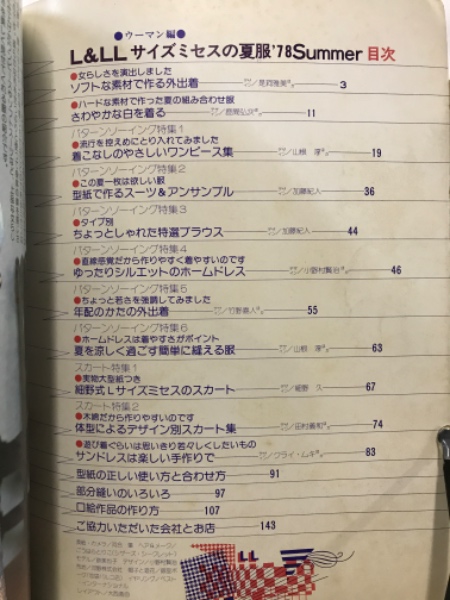 ●ウーマン編●
L&LLサイズミセスの夏服'78Summer 目次
●女らしさを演出しました
ソフトな素材で作る外出着 3
●ハードな素材で作った夏の組み合わせ服
さわやかな白を着る 11
パターンソーイング特集1
●流行を控えめにとり入れてみました
着こなしのやさしいワンピース集 /山根 19
パターンソーイング特集2
●この夏一枚は欲しい服
型紙で作るスーツ&アンサンブル /加藤紀人 36
パターンソーイング特集3
●タイプ別
ちょっとしゃれた特選ブラウス /加藤紀人 44
パターンソーイング特集4
●直線感覚だから作りやすく着やすいのです
ゆったりシルエットのホームドレス /小野村賢治 46
パターンソーイング特集5
●ちょっと若さを強調してみました
年配のかたの外出着 55
パターンソーイング特集6
●ホームドレスは着やすさがポイント
夏を涼しく過ごす簡単に縫える服 /山根 63
スカート特集1
●実物大型紙つき
細野式Lサイズミセスのスカート /細野 久 67
スカート特集2
●木綿だから作りやすいのです
体型によるデザイン別スカート集 /田村義和 74
●遊び着ぐらいは思いきり若々しくしたいもの
サンドレスは楽しい手作りで /フライ・ムギ 83
型紙の正しい使い方と合わせ方 91
部分縫いのいろいろ 97
口絵作品の作り方 107
ご協力いただいた会社とお店 143
LL